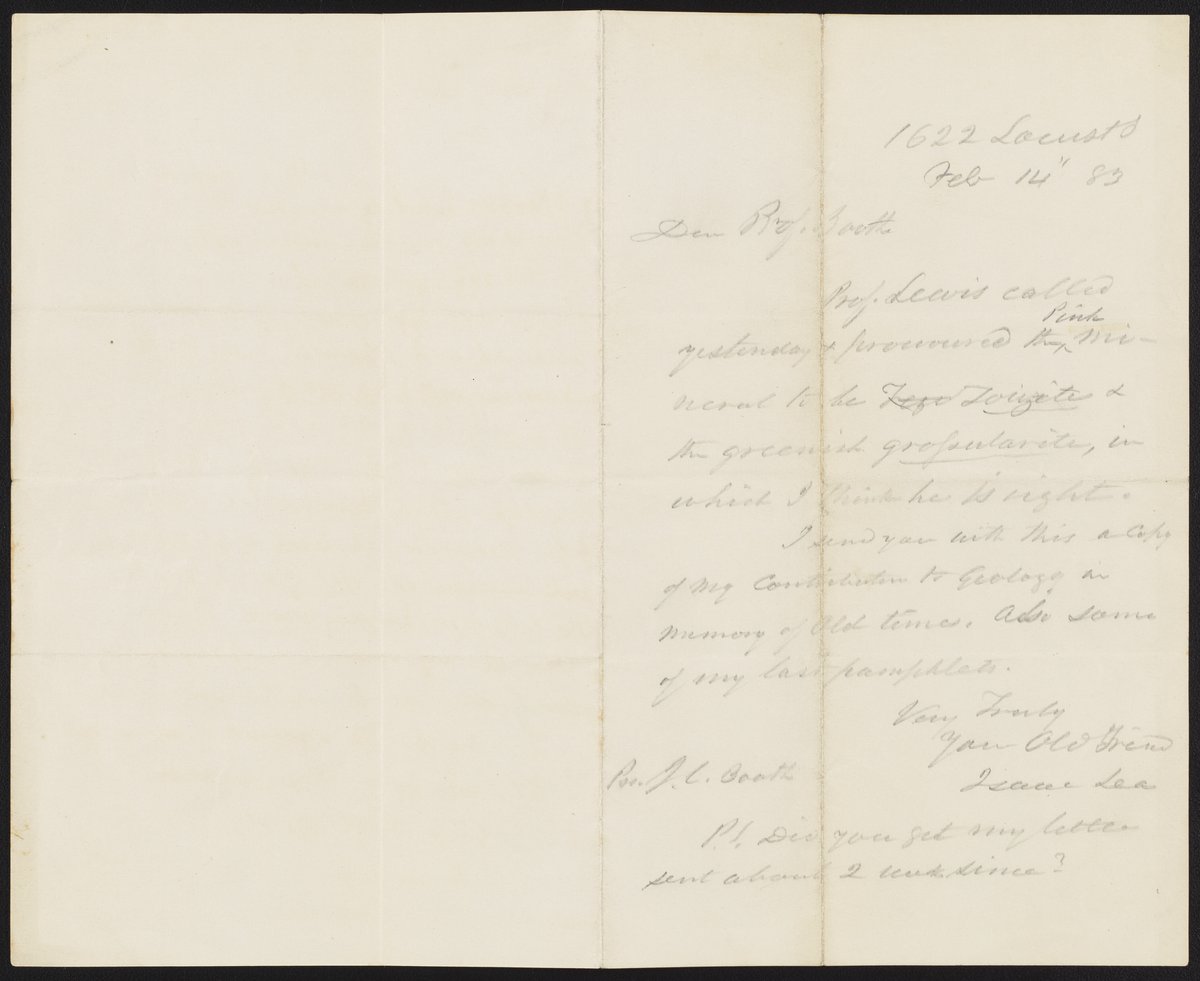 1622 Locust St
Feb 14" 83
Dear Prof. Booth
Prof. Lewis called
yesterday & pronounced the Pink Mi-
neral to be Zoisite &
the greenish grossularite, in
which I think he is right.
I send you with this a Copy
of my Contribution to Geology in
memory of Old times. Also some
of my last pamphlets.
Very Truly
Your Old Friend
Isaac Lea
J. C. Booth
P.S. Did you get my letter
sent about 2 weeks since?